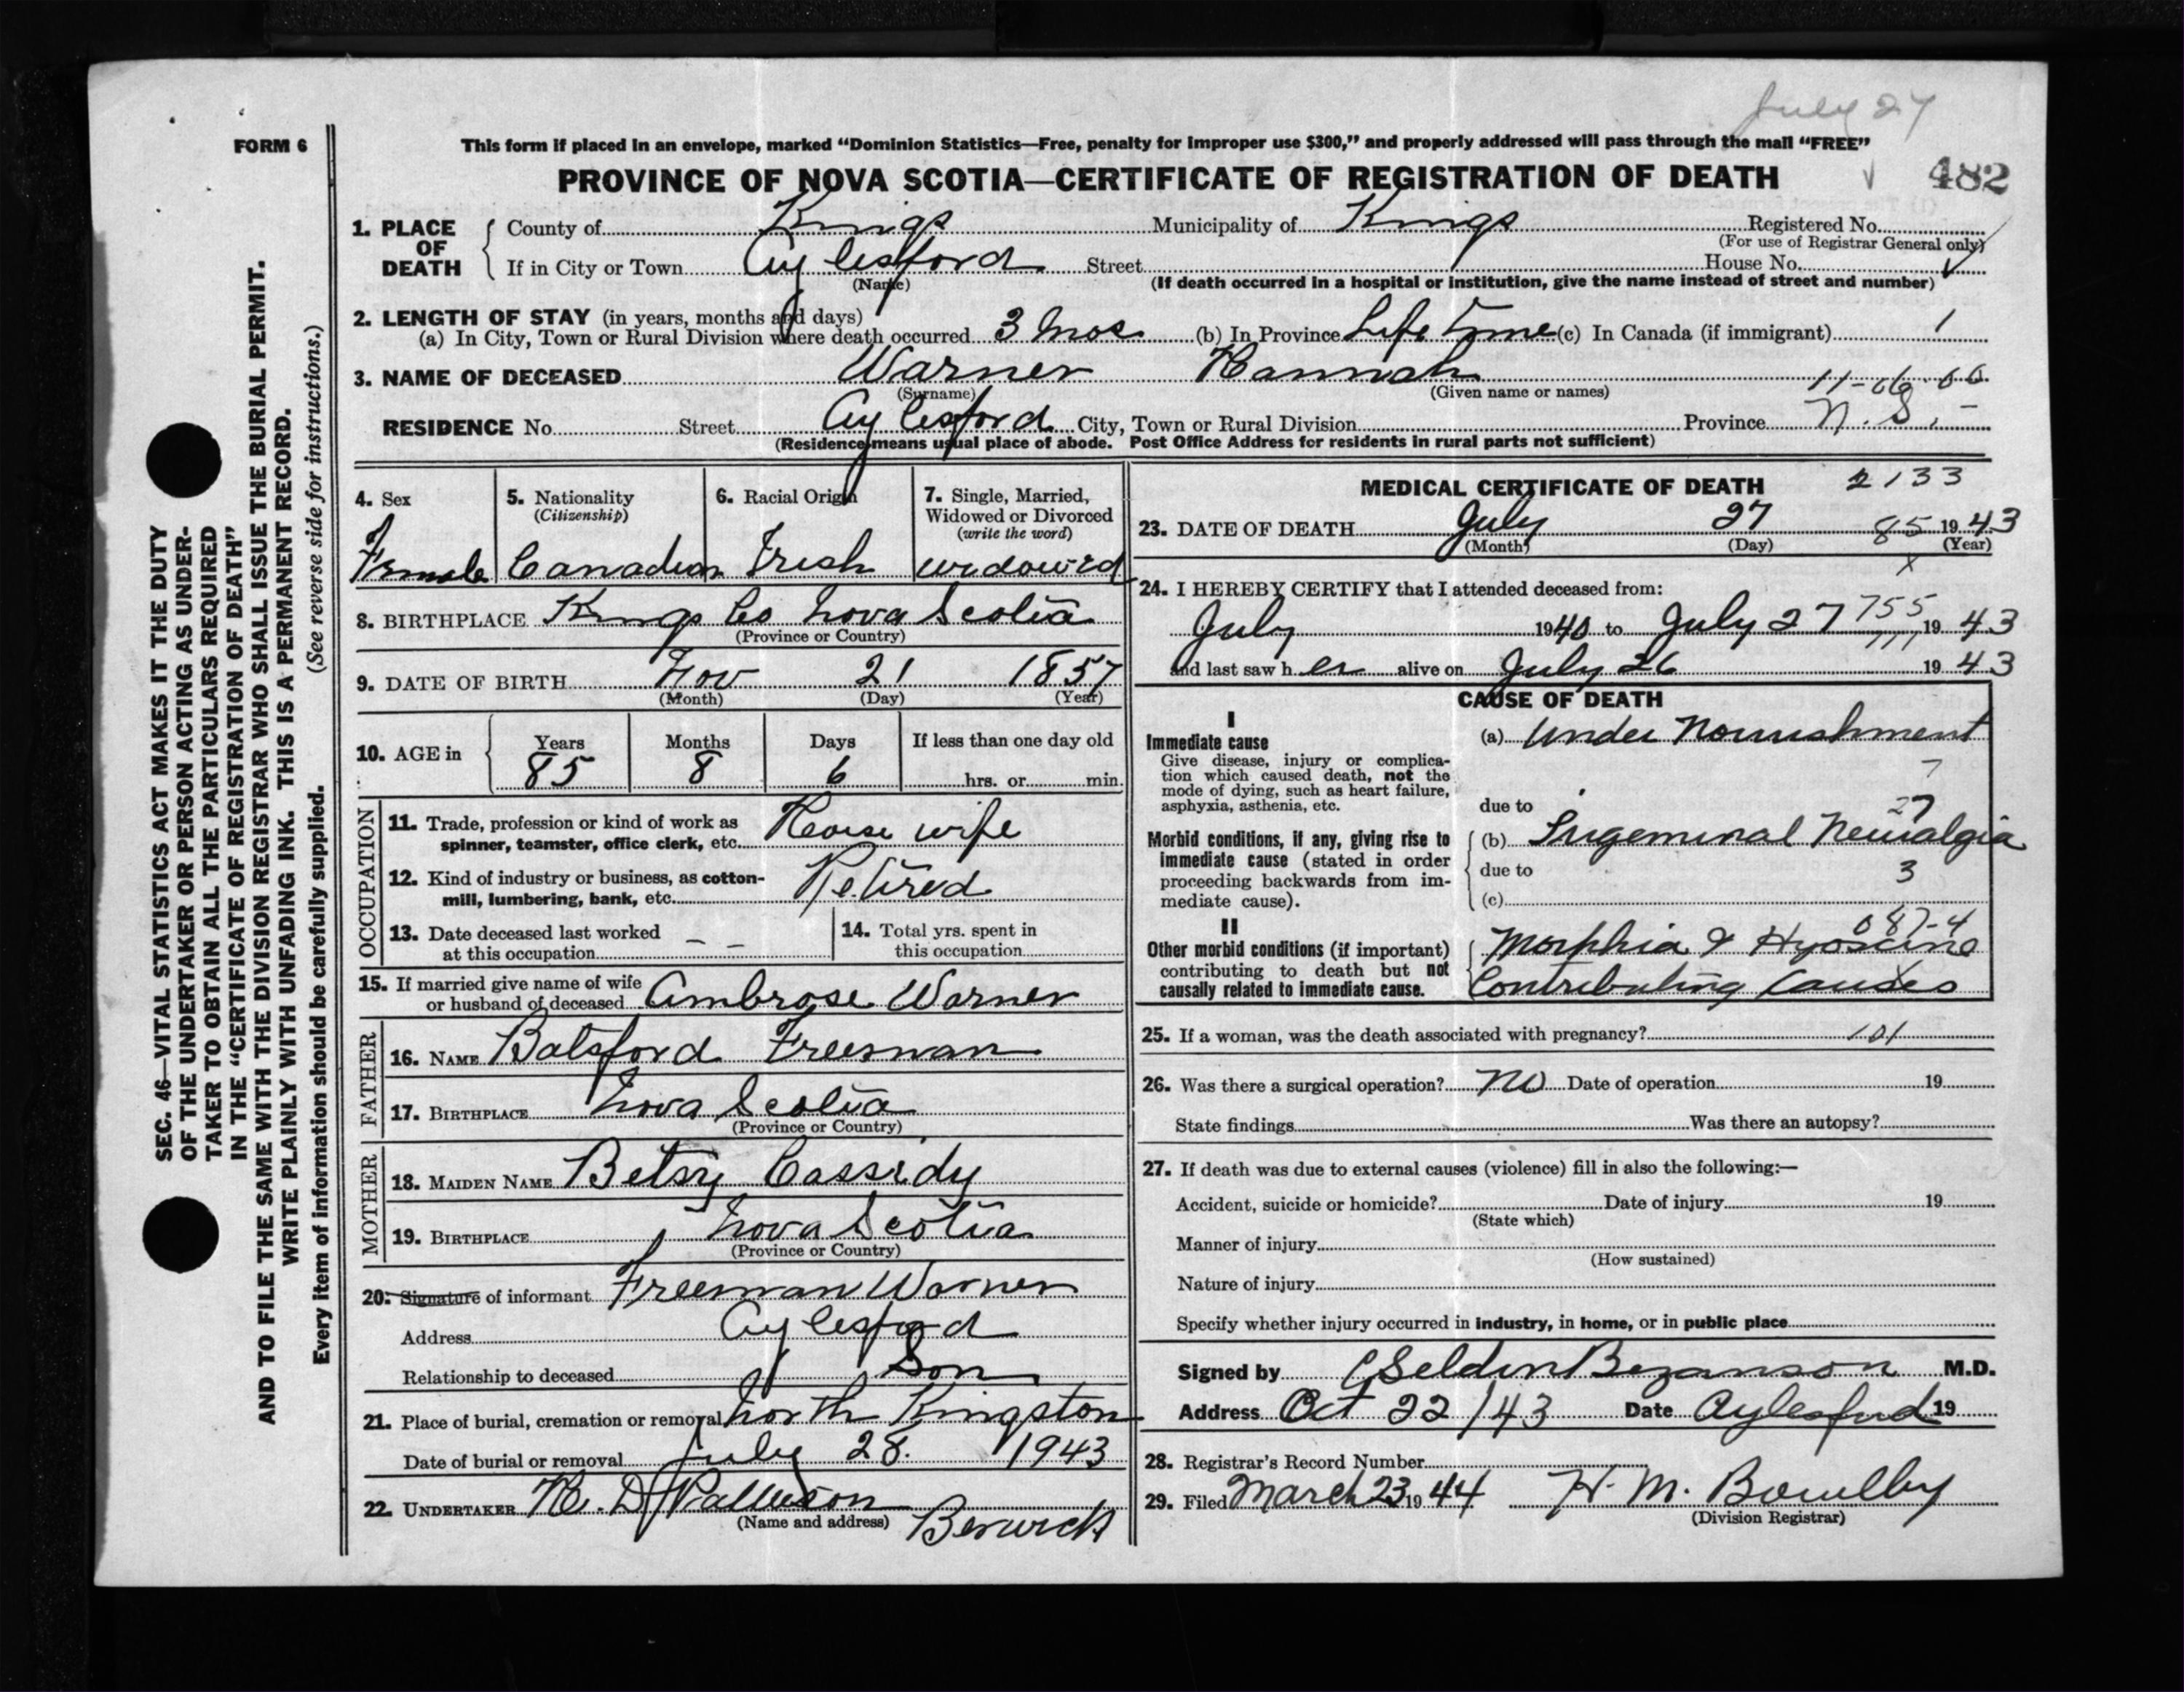 July 27
FORM 6
This form if placed in an envelope, marked "Dominion Statistics—Free, penalty for improper use $300," and properly addressed will pass through the mail "FREE"
PROVINCE OF NOVA SCOTIA—CERTIFICATE OF REGISTRATION OF DEATH
482
1. PLACE OF DEATH
County of Kings Municipality of Kings Registered No.
(For use of Registrar General only)
If in City or Town Aylesford Street House No.
(Name) (If death occurred in a hospital or institution, give the name instead of street and number)
2. LENGTH OF STAY (in years, months and days)
(a) In City, Town or Rural Division where death occurred 3 mos (b) In Province Life time (c) In Canada (if immigrant)
3. NAME OF DECEASED Warner Hannah
(Surname) (Given name or names)
11-06-66
RESIDENCE No. Street Aylesford City, Town or Rural Division Province N.S.
(Residence means usual place of abode. Post Office Address for residents in rural parts not sufficient)
4. Sex
Female
5. Nationality
(Citizenship)
Canadian
6. Racial Origin
Irish
7. Single, Married, Widowed or Divorced
(write the word)
widowed
8. BIRTHPLACE Kings Co Nova Scotia
(Province or Country)
9. DATE OF BIRTH Nov 21 1857
(Month) (Day) (Year)
10. AGE in
Years Months Days If less than one day old
85 8 6 hrs. or min.
OCCUPATION
11. Trade, profession or kind of work as
spinner, teamster, office clerk, etc. House wife
12. Kind of industry or business, as cotton-
mill, lumbering, bank, etc. Retired
13. Date deceased last worked
at this occupation – –
14. Total yrs. spent in
this occupation
15. If married give name of wife
or husband of deceased Ambrose Warner
FATHER
16. NAME Batsford Freeman
17. BIRTHPLACE Nova Scotia
(Province or Country)
MOTHER
18. MAIDEN NAME Betsy Cassidy
19. BIRTHPLACE Nova Scotia
(Province or Country)
20. Signature of informant Freeman Warner
Address Aylesford
Relationship to deceased Son
21. Place of burial, cremation or removal North Kingston
Date of burial or removal July 28. 1943
22. UNDERTAKER
(Name and address) Berwick
MEDICAL CERTIFICATE OF DEATH
2133
23. DATE OF DEATH July 27 85 1943
(Month) (Day) (Year)
x
24. I HEREBY CERTIFY that I attended deceased from:
July 1940 to July 27 755 1943
and last saw her alive on July 26 1943
CAUSE OF DEATH
I
Immediate cause
Give disease, injury or complica-
tion which caused death, not the
mode of dying, such as heart failure,
asphyxia, asthenia, etc.
(a) Under Nourishment
7
due to
27
Morbid conditions, if any, giving rise to
immediate cause (stated in order
proceeding backwards from im-
mediate cause).
(b) Trigeminal Neuralgia
due to
3
(c)
087-4
II
Other morbid conditions (if important)
contributing to death but not
causally related to immediate cause.
Morphia & Hyoscine
Contributing Causes
25. If a woman, was the death associated with pregnancy? 101
26. Was there a surgical operation? No Date of operation 19
State findings Was there an autopsy?
27. If death was due to external causes (violence) fill in also the following:—
Accident, suicide or homicide? Date of injury 19
(State which)
Manner of injury
(How sustained)
Nature of injury
Specify whether injury occurred in industry, in home, or in public place
Signed by Seldin Bezanson M.D.
Address Oct 22/43 Date Aylesford 19
28. Registrar's Record Number
29. Filed March 23 1944 H. M. Bowlby
(Division Registrar)
SEC. 46—VITAL STATISTICS ACT MAKES IT THE DUTY
OF THE UNDERTAKER OR PERSON ACTING AS UNDER-
TAKER TO OBTAIN ALL THE PARTICULARS REQUIRED
IN THE "CERTIFICATE OF REGISTRATION OF DEATH"
AND TO FILE THE SAME WITH THE DIVISION REGISTRAR WHO SHALL ISSUE THE BURIAL PERMIT.
WRITE PLAINLY WITH UNFADING INK. THIS IS A PERMANENT RECORD.
Every item of information should be carefully supplied. (See reverse side for instructions.)